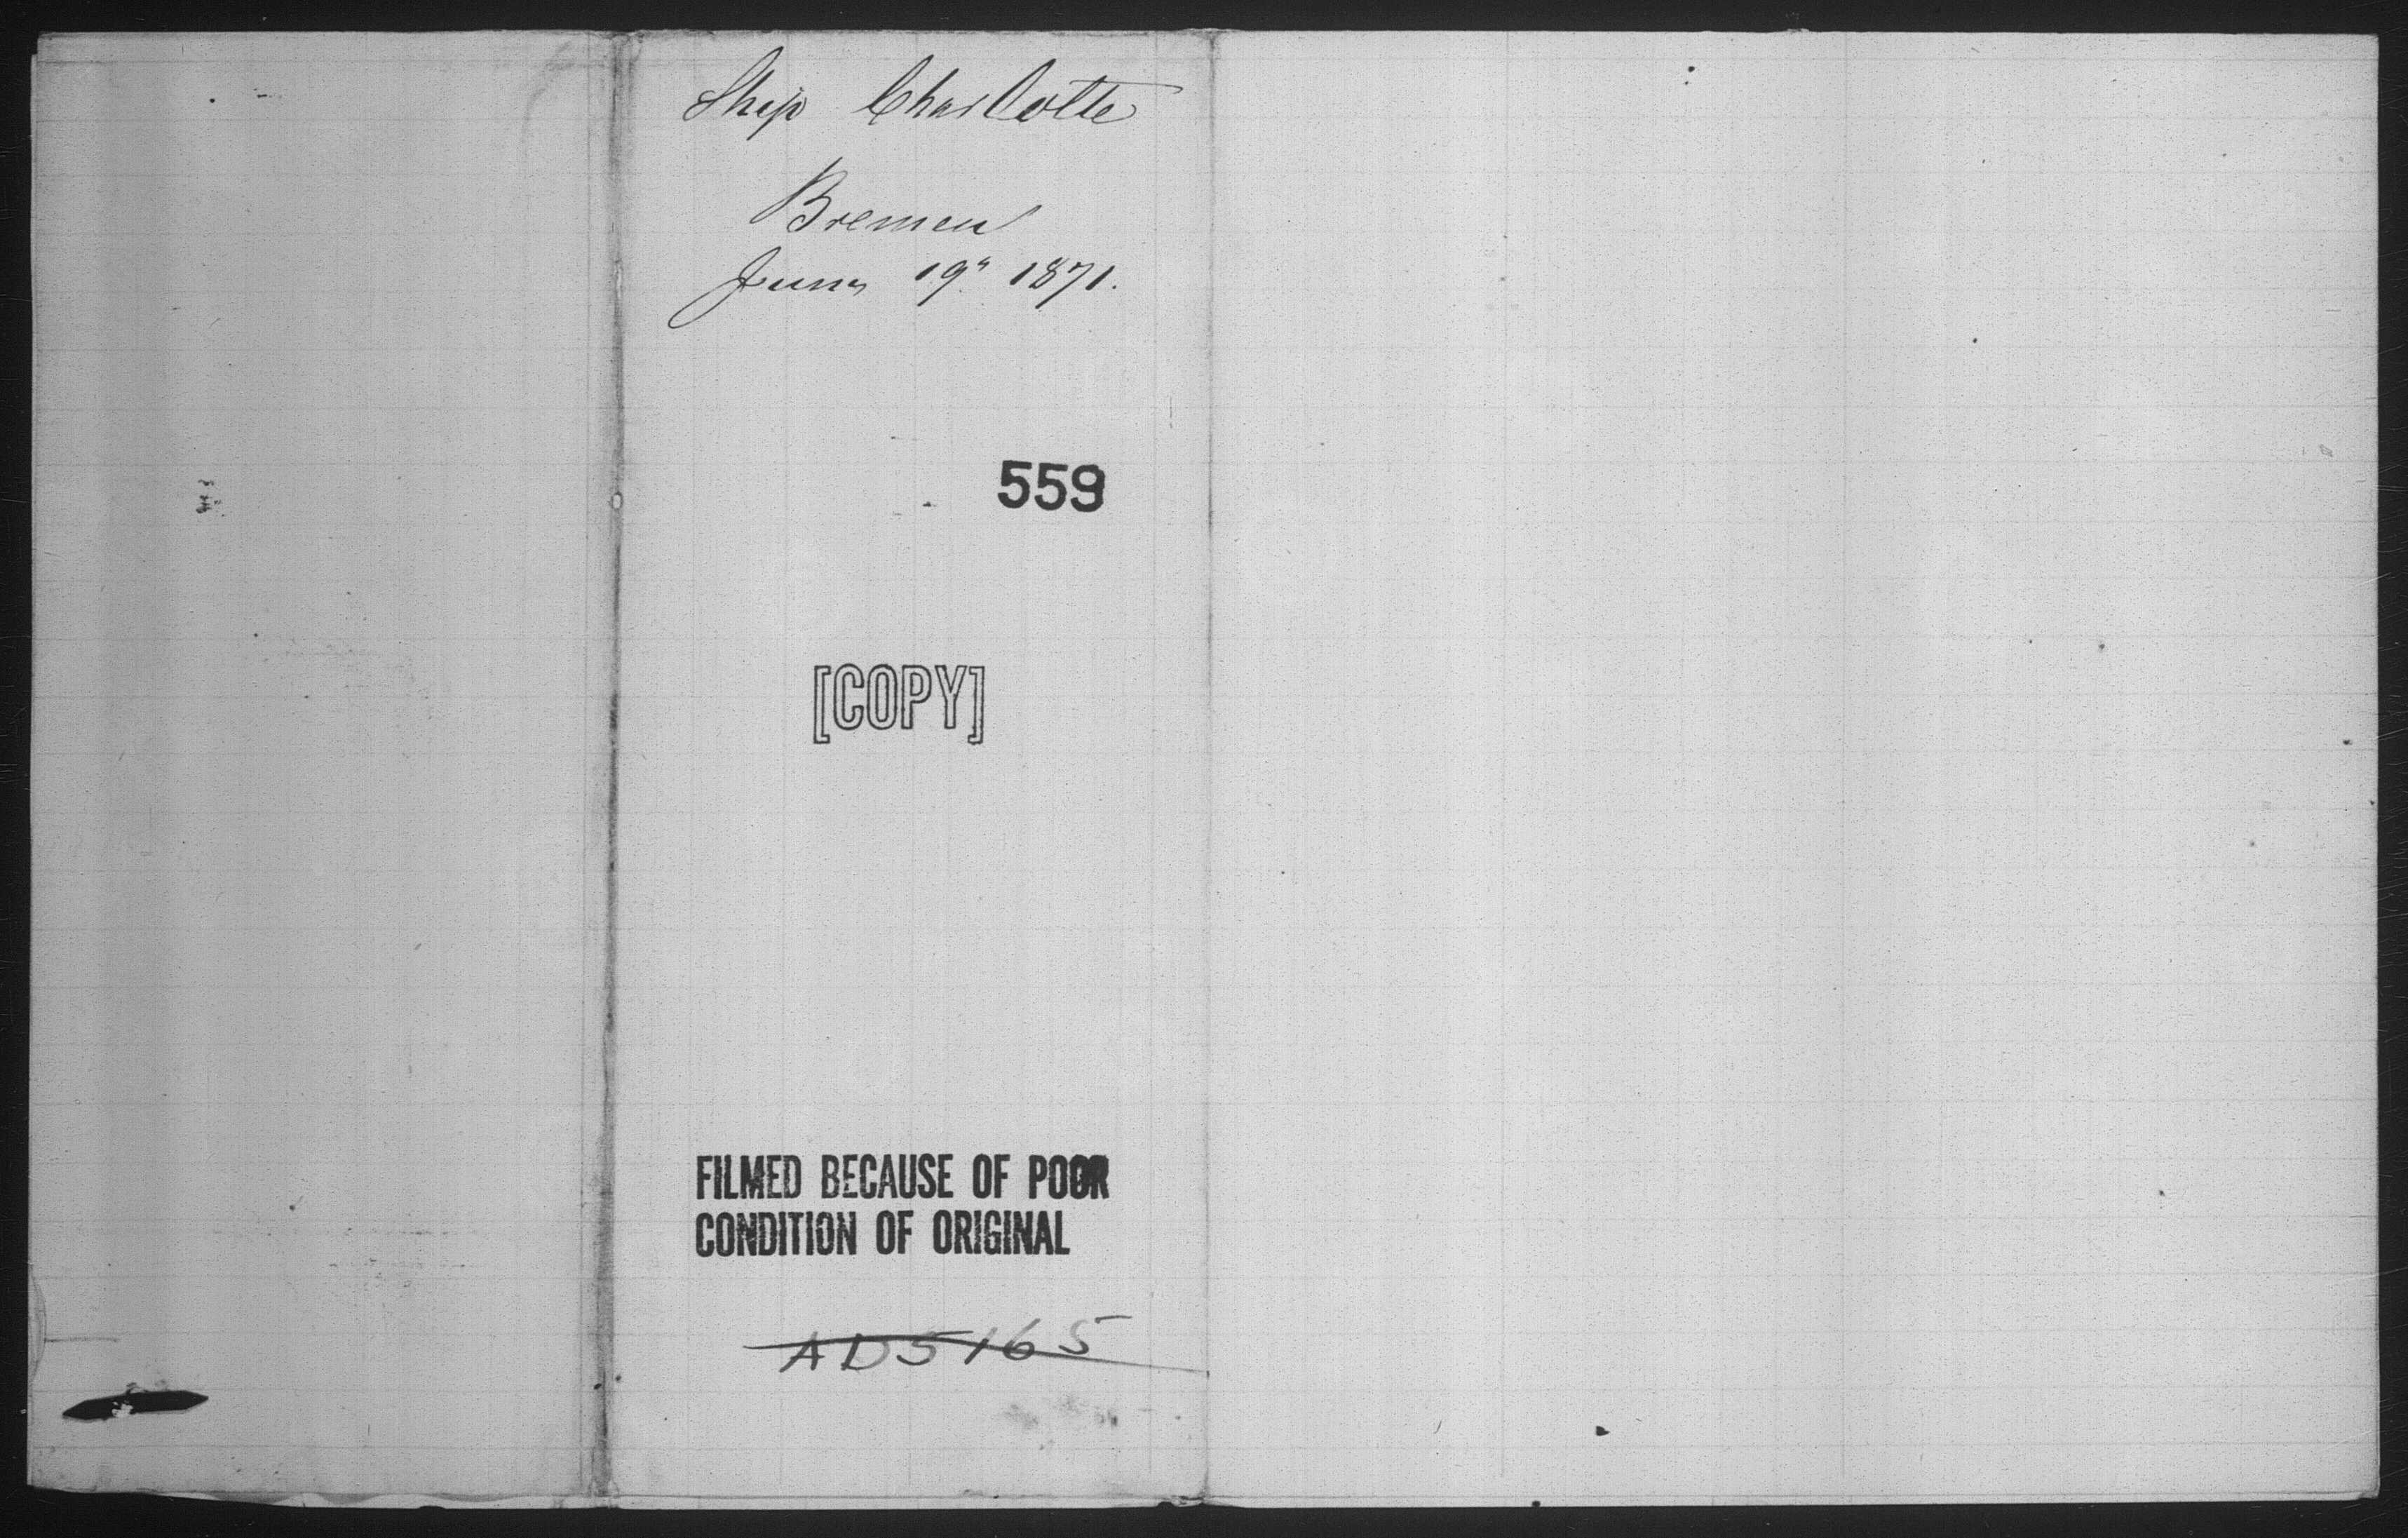 Ship Charlotte
Bremen
June 19" 1871.
559
[COPY]
FILMED BECAUSE OF POOR
CONDITION OF ORIGINAL
AD5165